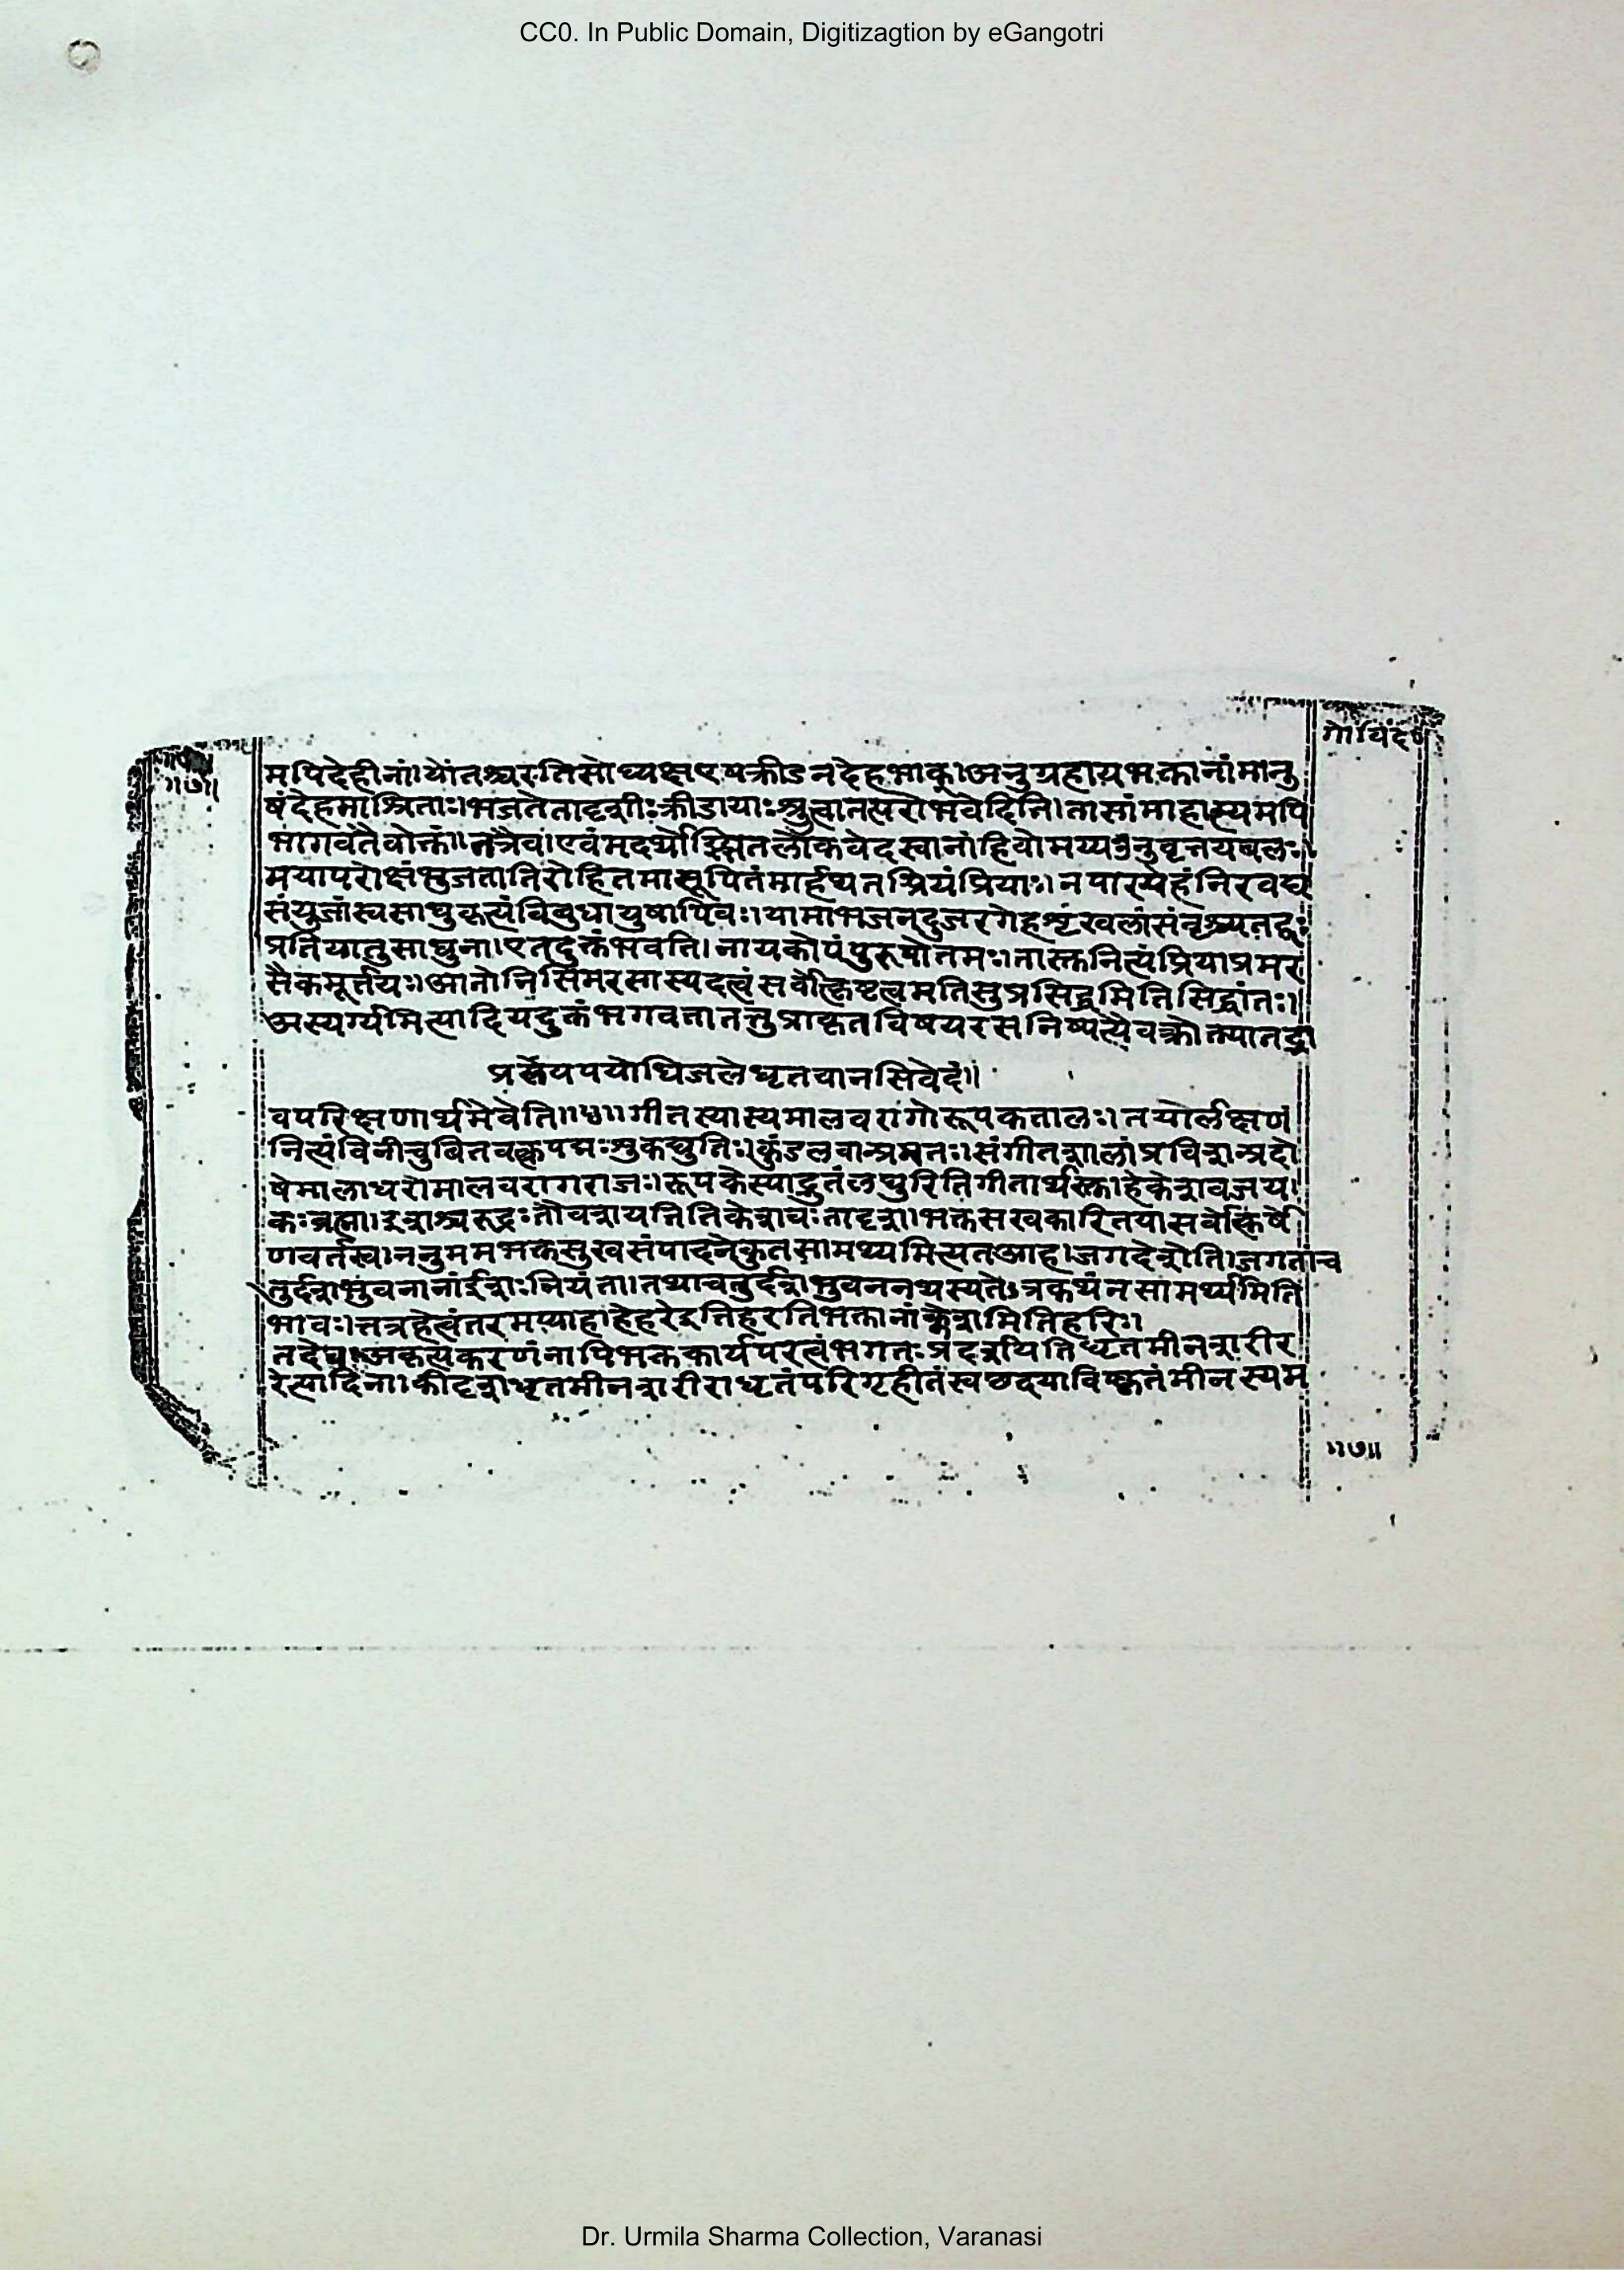 CC0. In Public Domain, Digitizagtion by eGangotri
गोविंद
॥७॥
मपिदेहीनां।योंतश्चरतिसोध्यक्षएषक्रीडनदेहभाक्।अनुग्रहायभक्तानांमानु
षंदेहमाश्रिताः।भजतेतादृशीःक्रीडायाःश्रुत्वातत्परोभवेदिति।तासांमाहात्म्यमपि
भागवतंतैवोक्तं।तत्रैव।एवंमदर्थोझ्झितलोकवेदस्वानांहिवोमय्यनुवृत्तयेबलः।
मयापरोक्षंभजतातिरोहितंमासूयितंमार्हथतत्प्रियंप्रियाः।नपारयेहंनिरवद्य
संयुजांस्वसाधुकृत्यंविबुधायुषापिवः।यामाभजन्दुर्जरगेहशृंखलांसंवृश्च्यतद्वः
प्रतियातुसाधुना।एतदुक्तंभवति।नायकोपंपुरूषोतमः।तास्क्तनित्यंप्रियाप्रमर
सैकमूर्त्तयः।आतोनिर्सिमरसास्पदत्वंसर्वोत्क्रिष्टत्वमतिसुप्रसिद्धमितिसिद्धांतः॥
अस्यर्ग्यमित्यादियदुक्तंभगवत्तातत्तुप्राकृतविषयरसनिष्पत्यैवक्रौत्यातद्भा
प्रलयपयोधिजलेधृतवानसिवेदं॥
वपरिक्षणार्थमेवेति॥५॥गीतस्यास्यमालवरागोरूपकतालः।तयोर्लक्षणं
नित्यंविनीचुबितवक्त्रपद्मःशुकद्युतिःकुंडलवान्प्रमतः।संगीतशालांप्रविशन्प्रदो
षेमालाधरोमालवरागराजः।रूपकेस्याद्द्रुतंलघुरितिगीतार्थस्तु।हेकेशवजय।
कःब्रह्मा।ईशश्चरूद्रःतौवशयतितिकेशवःतादृश।भक्तसखकारितयासर्वोत्किर्षे
णवर्तस्व।ननुममभक्तसुखसंपादनेकुतसामर्थ्यमित्यतआह।जगदेशेति।जगतांच
तुर्दशभुवनानांईशःनियंता।तथाचतुर्दशभुवननथस्यतेऽत्रकथंनसामर्थ्यमिति
भावः।तत्रहेत्वंतरमप्याह।हेहरेइतिहरतिभक्तानांक्लेशमितिहरिः।
तदेवअकृत्यकरणंनापिभक्तकार्यपरत्वंभगतःप्रदर्शयितिधृतमीनशरीर
रेत्यादिना।कीदृशधृतमीनशरीराधृतंपरिगृहीतंस्वछदयाविष्कृतंमीनस्यम
॥७॥
Dr. Urmila Sharma Collection, Varanasi